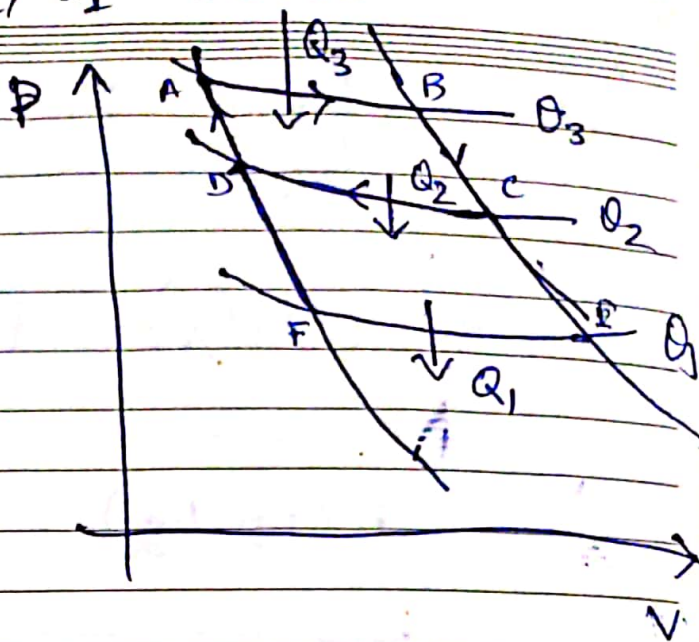 Q₃
P
A
B
θ₃
D
Q₂
C
θ₂
F
E
θ₁
Q₁
V